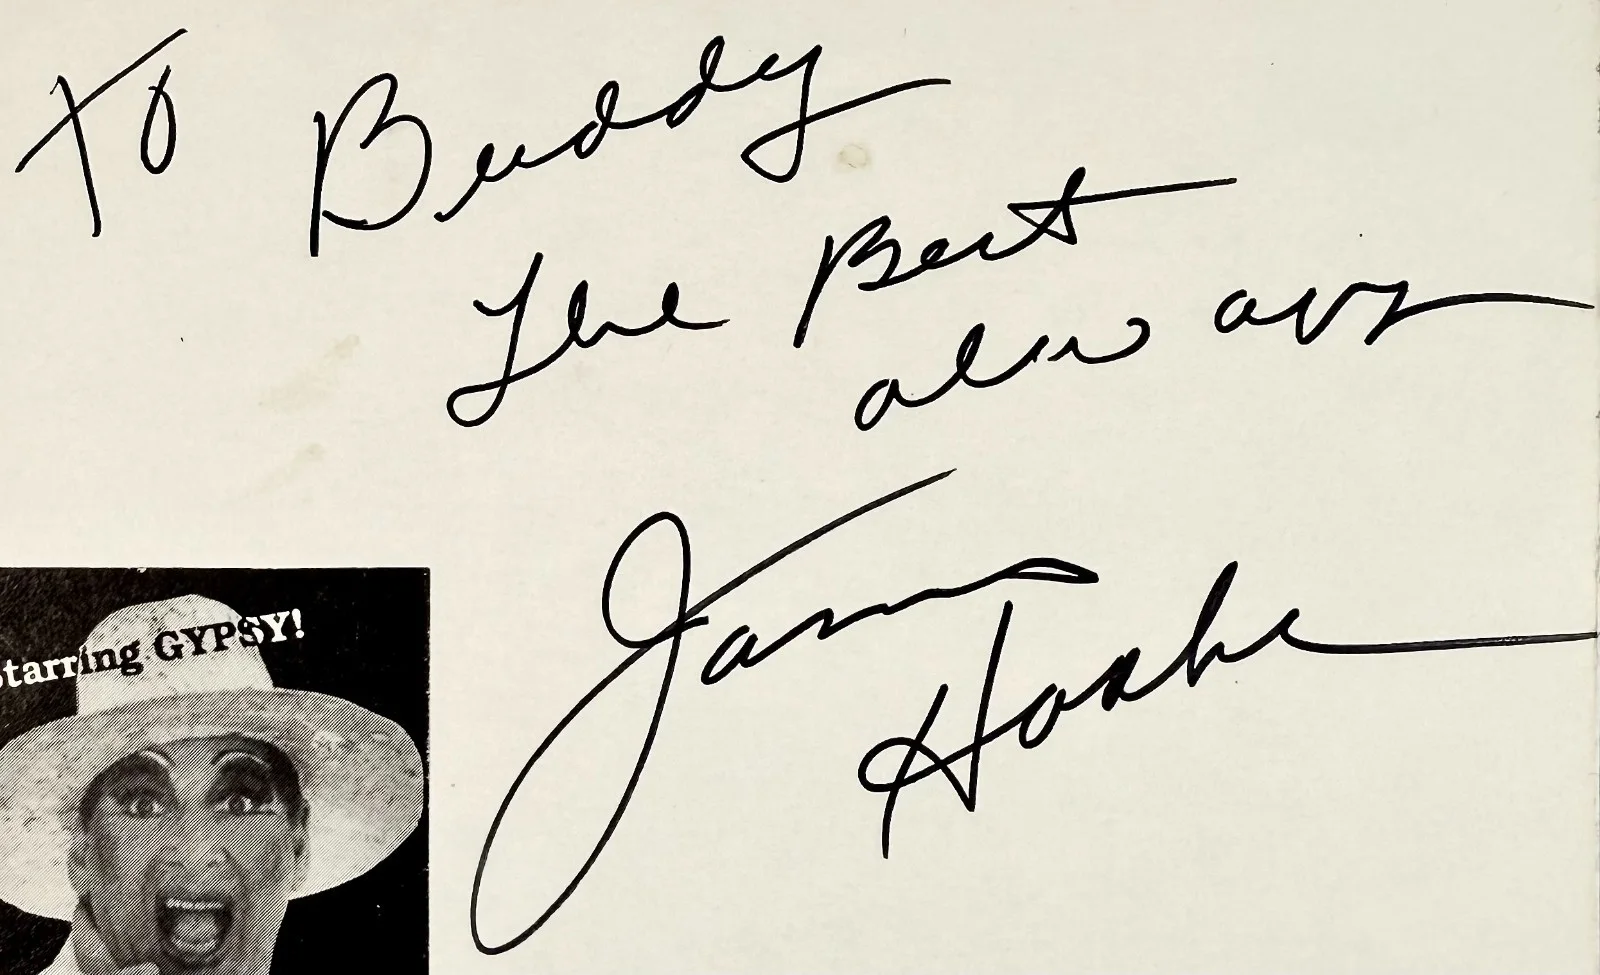 To Buddy
The Best
always
James
starring GYPSY!